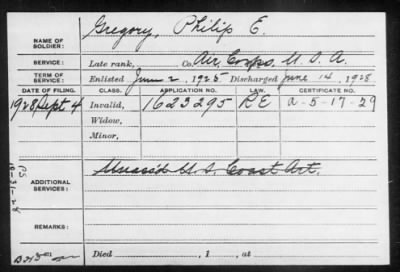 NAME OF SOLDIER: Gregory, Philip E.
SERVICE: Late rank, Co. Air Corps, U. S. A.
TERM OF SERVICE: Enlisted June 2, 1925 Discharged June 14, 1928
DATE OF FILING. CLASS. APPLICATION NO. LAW. CERTIFICATE NO.
1928 Sept 4 Invalid, 1623295 RE A-5-17-29
Widow,
Minor,
ADDITIONAL SERVICES: Unass'd U. S. Coast Art.
REMARKS:
Died , 1 , at